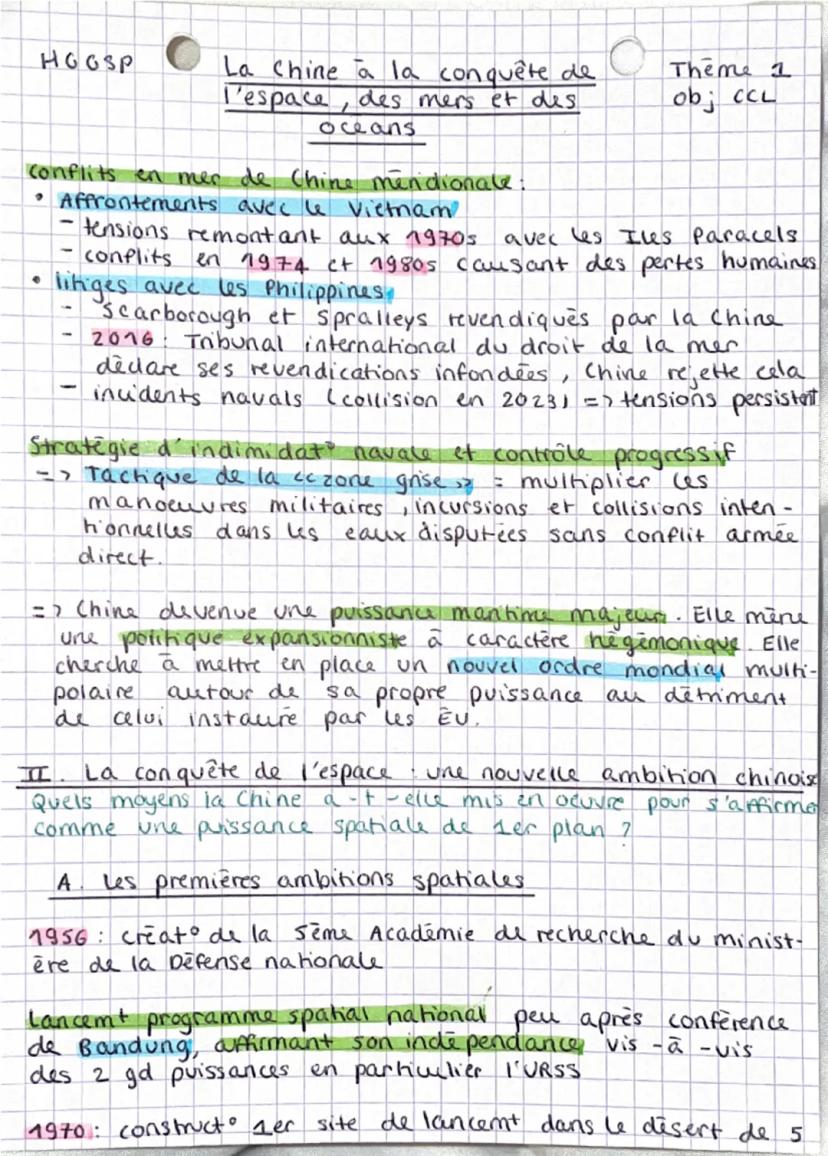 HGGSP
La Chine à la conquête de
l'espace, des mers et des
océans
Thème 1
Obj CCL
conflits en mer de Chine méridionale :
• Affrontements avec le Vietnam
- tensions remontant aux 1970s avec les Iles Paracels
- conflits en 1974 et 1980s causant des pertes humaines
• litiges avec les Philippines
- Scarborough et Spralleys revendiqués par la Chine
- 2016 : Tribunal international du droit de la mer
déclare ses revendications infondées, Chine rejette cela
- incidents navals (collision en 2023) => tensions persistent
Stratégie d'indimidat° navale et contrôle progressif
=> Tactique de la << zone grise >> = multiplier les
manoeuvres militaires, incursions et collisions inten-
tionnelles dans les eaux disputées sans conflit armée
direct.
=> Chine devenue une puissance maritime majeur. Elle mène
une politique expansionniste à caractère hégémonique. Elle
cherche à mettre en place un nouvel ordre mondial multi-
polaire autour de sa propre puissance au détriment
de celui instauré par les EU.
II. La conquête de l'espace : une nouvelle ambition chinoise
Quels moyens la Chine a-t-elle mis en oeuvre pour s'affirmer
comme une puissance spatiale de 1er plan ?
A. Les premières ambitions spatiales
1956 : créat° de la 5ème Académie de recherche du minist-
ère de la Défense nationale
Lancemt programme spatial national peu après conférence
de Bandung, affirmant son indépendance vis-à-vis
des 2 gd puissances en particulier l'URSS
1970 : construct° 1er site de lancemt dans le désert de
5